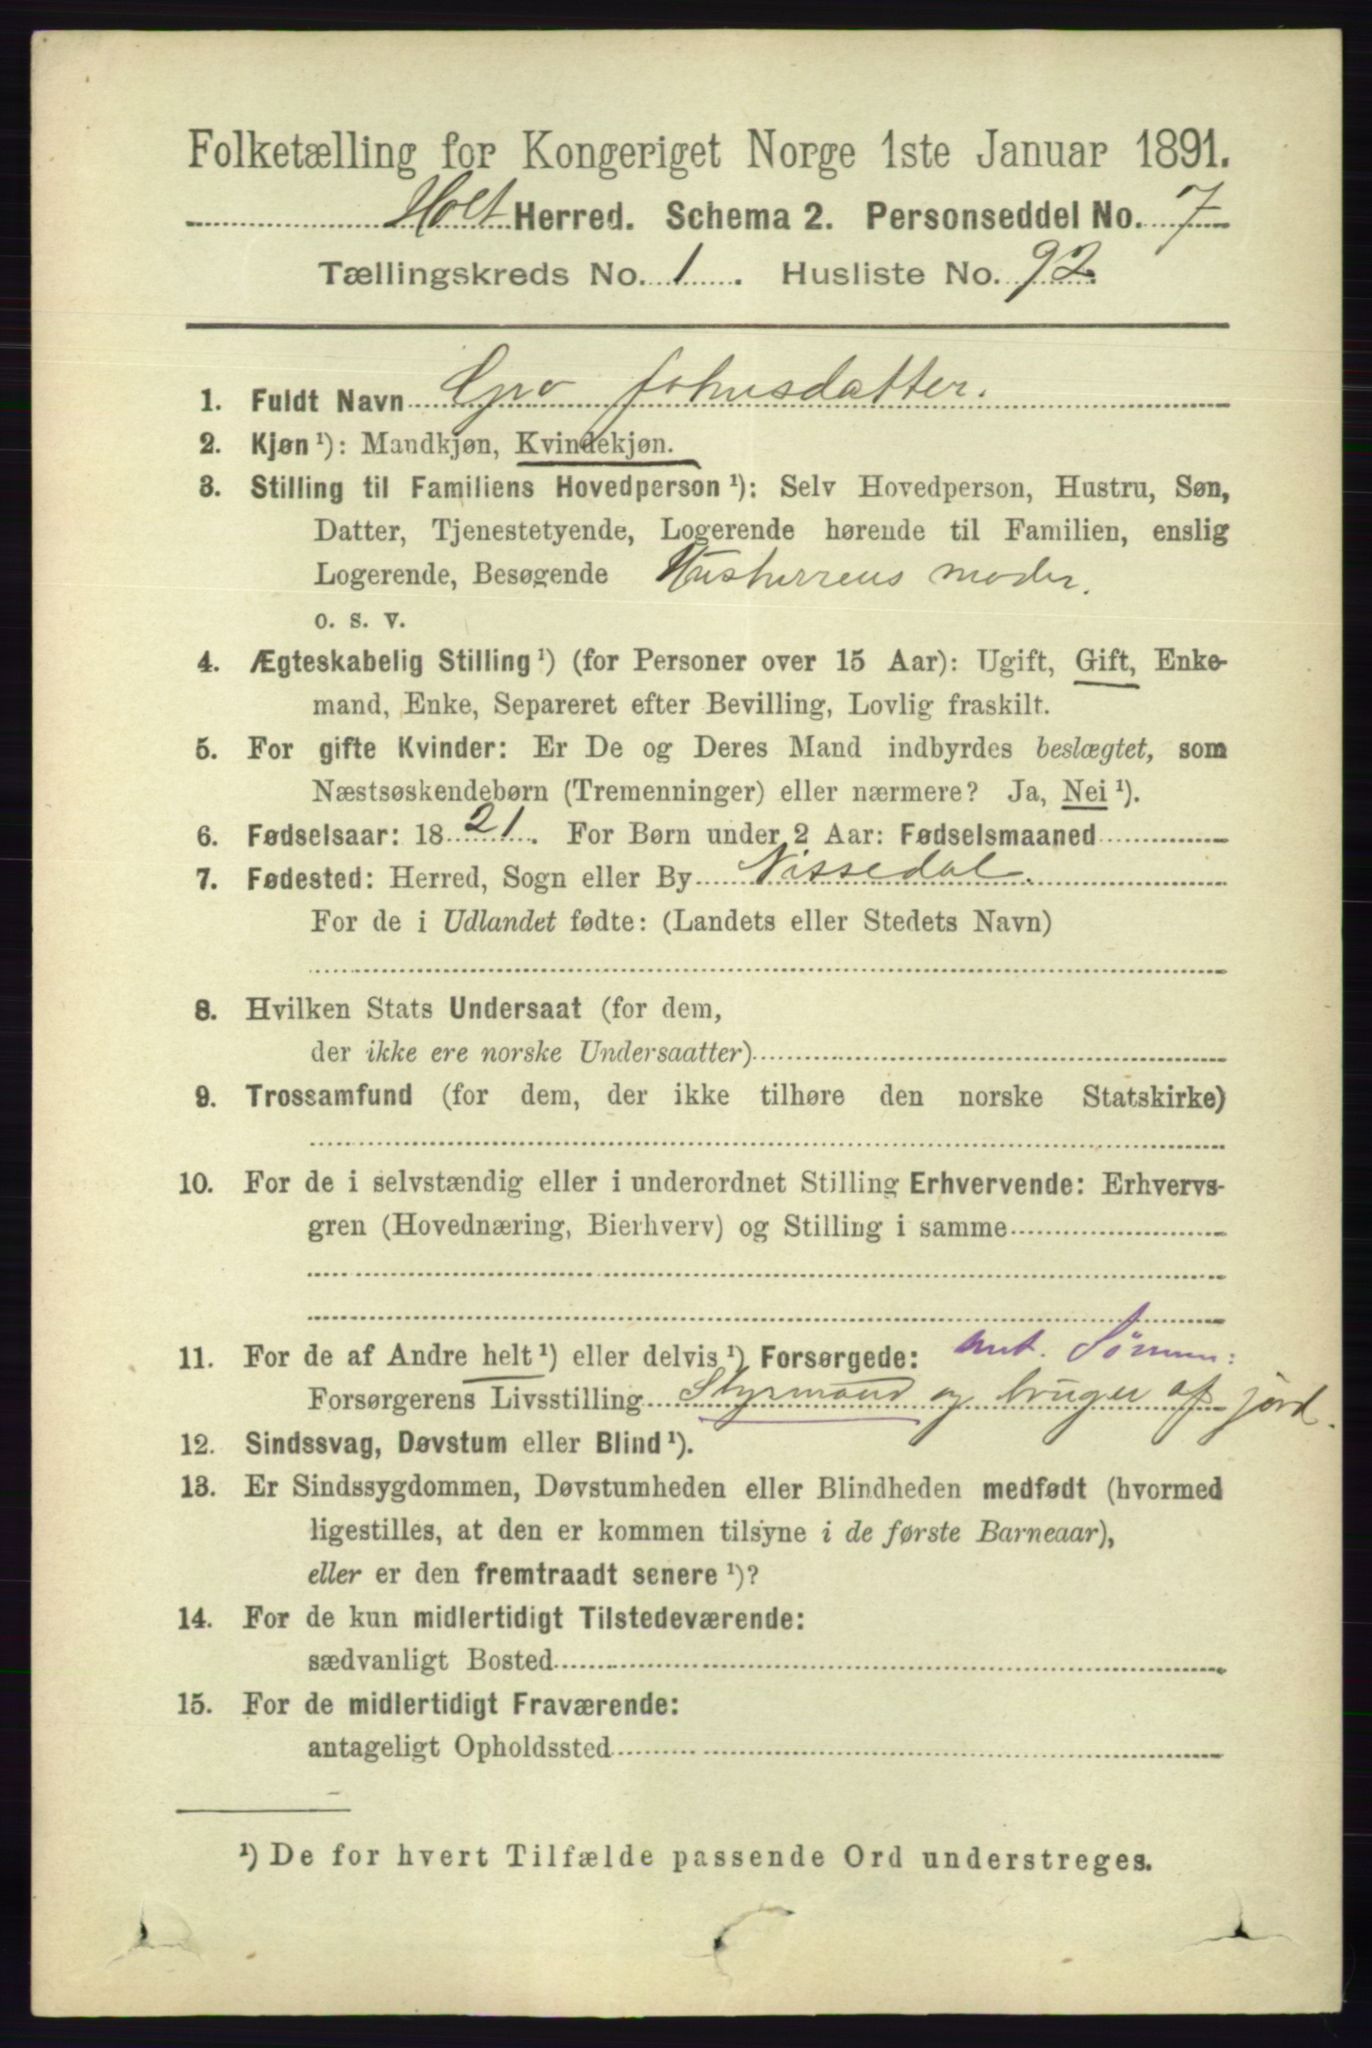 Folketælling for Kongeriget Norge 1ste Januar 1891.
Holt Herred. Schema 2. Personseddel No. 7
Tællingskreds No. 1. Husliste No. 92.
1. Fuldt Navn Gro Johnsdatter.
2. Kjøn ¹): Mandkjøn, Kvindekjøn.
3. Stilling til Familiens Hovedperson ¹): Selv Hovedperson, Hustru, Søn,
Datter, Tjenestetyende, Logerende hørende til Familien, enslig
Logerende, Besøgende Husherrens moder.
o. s. v.
4. Ægteskabelig Stilling ¹) (for Personer over 15 Aar): Ugift, Gift, Enke-
mand, Enke, Separeret efter Bevilling, Lovlig fraskilt.
5. For gifte Kvinder: Er De og Deres Mand indbyrdes beslægtet, som
Næstsøskendebørn (Tremenninger) eller nærmere? Ja, Nei ¹).
6. Fødselsaar: 1821. For Børn under 2 Aar: Fødselsmaaned
7. Fødested: Herred, Sogn eller By Nissedal.
For de i Udlandet fødte: (Landets eller Stedets Navn)
8. Hvilken Stats Undersaat (for dem,
der ikke ere norske Undersaatter)
9. Trossamfund (for dem, der ikke tilhøre den norske Statskirke)
10. For de i selvstændig eller i underordnet Stilling Erhvervende: Erhvervs-
gren (Hovednæring, Bierhverv) og Stilling i samme
11. For de af Andre helt ¹) eller delvis ¹) Forsørgede: Sønnen:
Forsørgerens Livsstilling Styrmand og bruger af jord.
12. Sindssvag, Døvstum eller Blind ¹).
13. Er Sindssygdommen, Døvstumheden eller Blindheden medfødt (hvormed
ligestilles, at den er kommen tilsyne i de første Barneaar),
eller er den fremtraadt senere ¹)?
14. For de kun midlertidigt Tilstedeværende:
sædvanligt Bosted
15. For de midlertidigt Fraværende:
antageligt Opholdssted
¹) De for hvert Tilfælde passende Ord understreges.